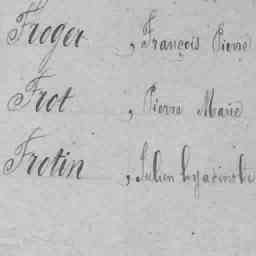 Froger , François Pierre
Frot , Pierre Marie
Frotin , Julien hyacinthe